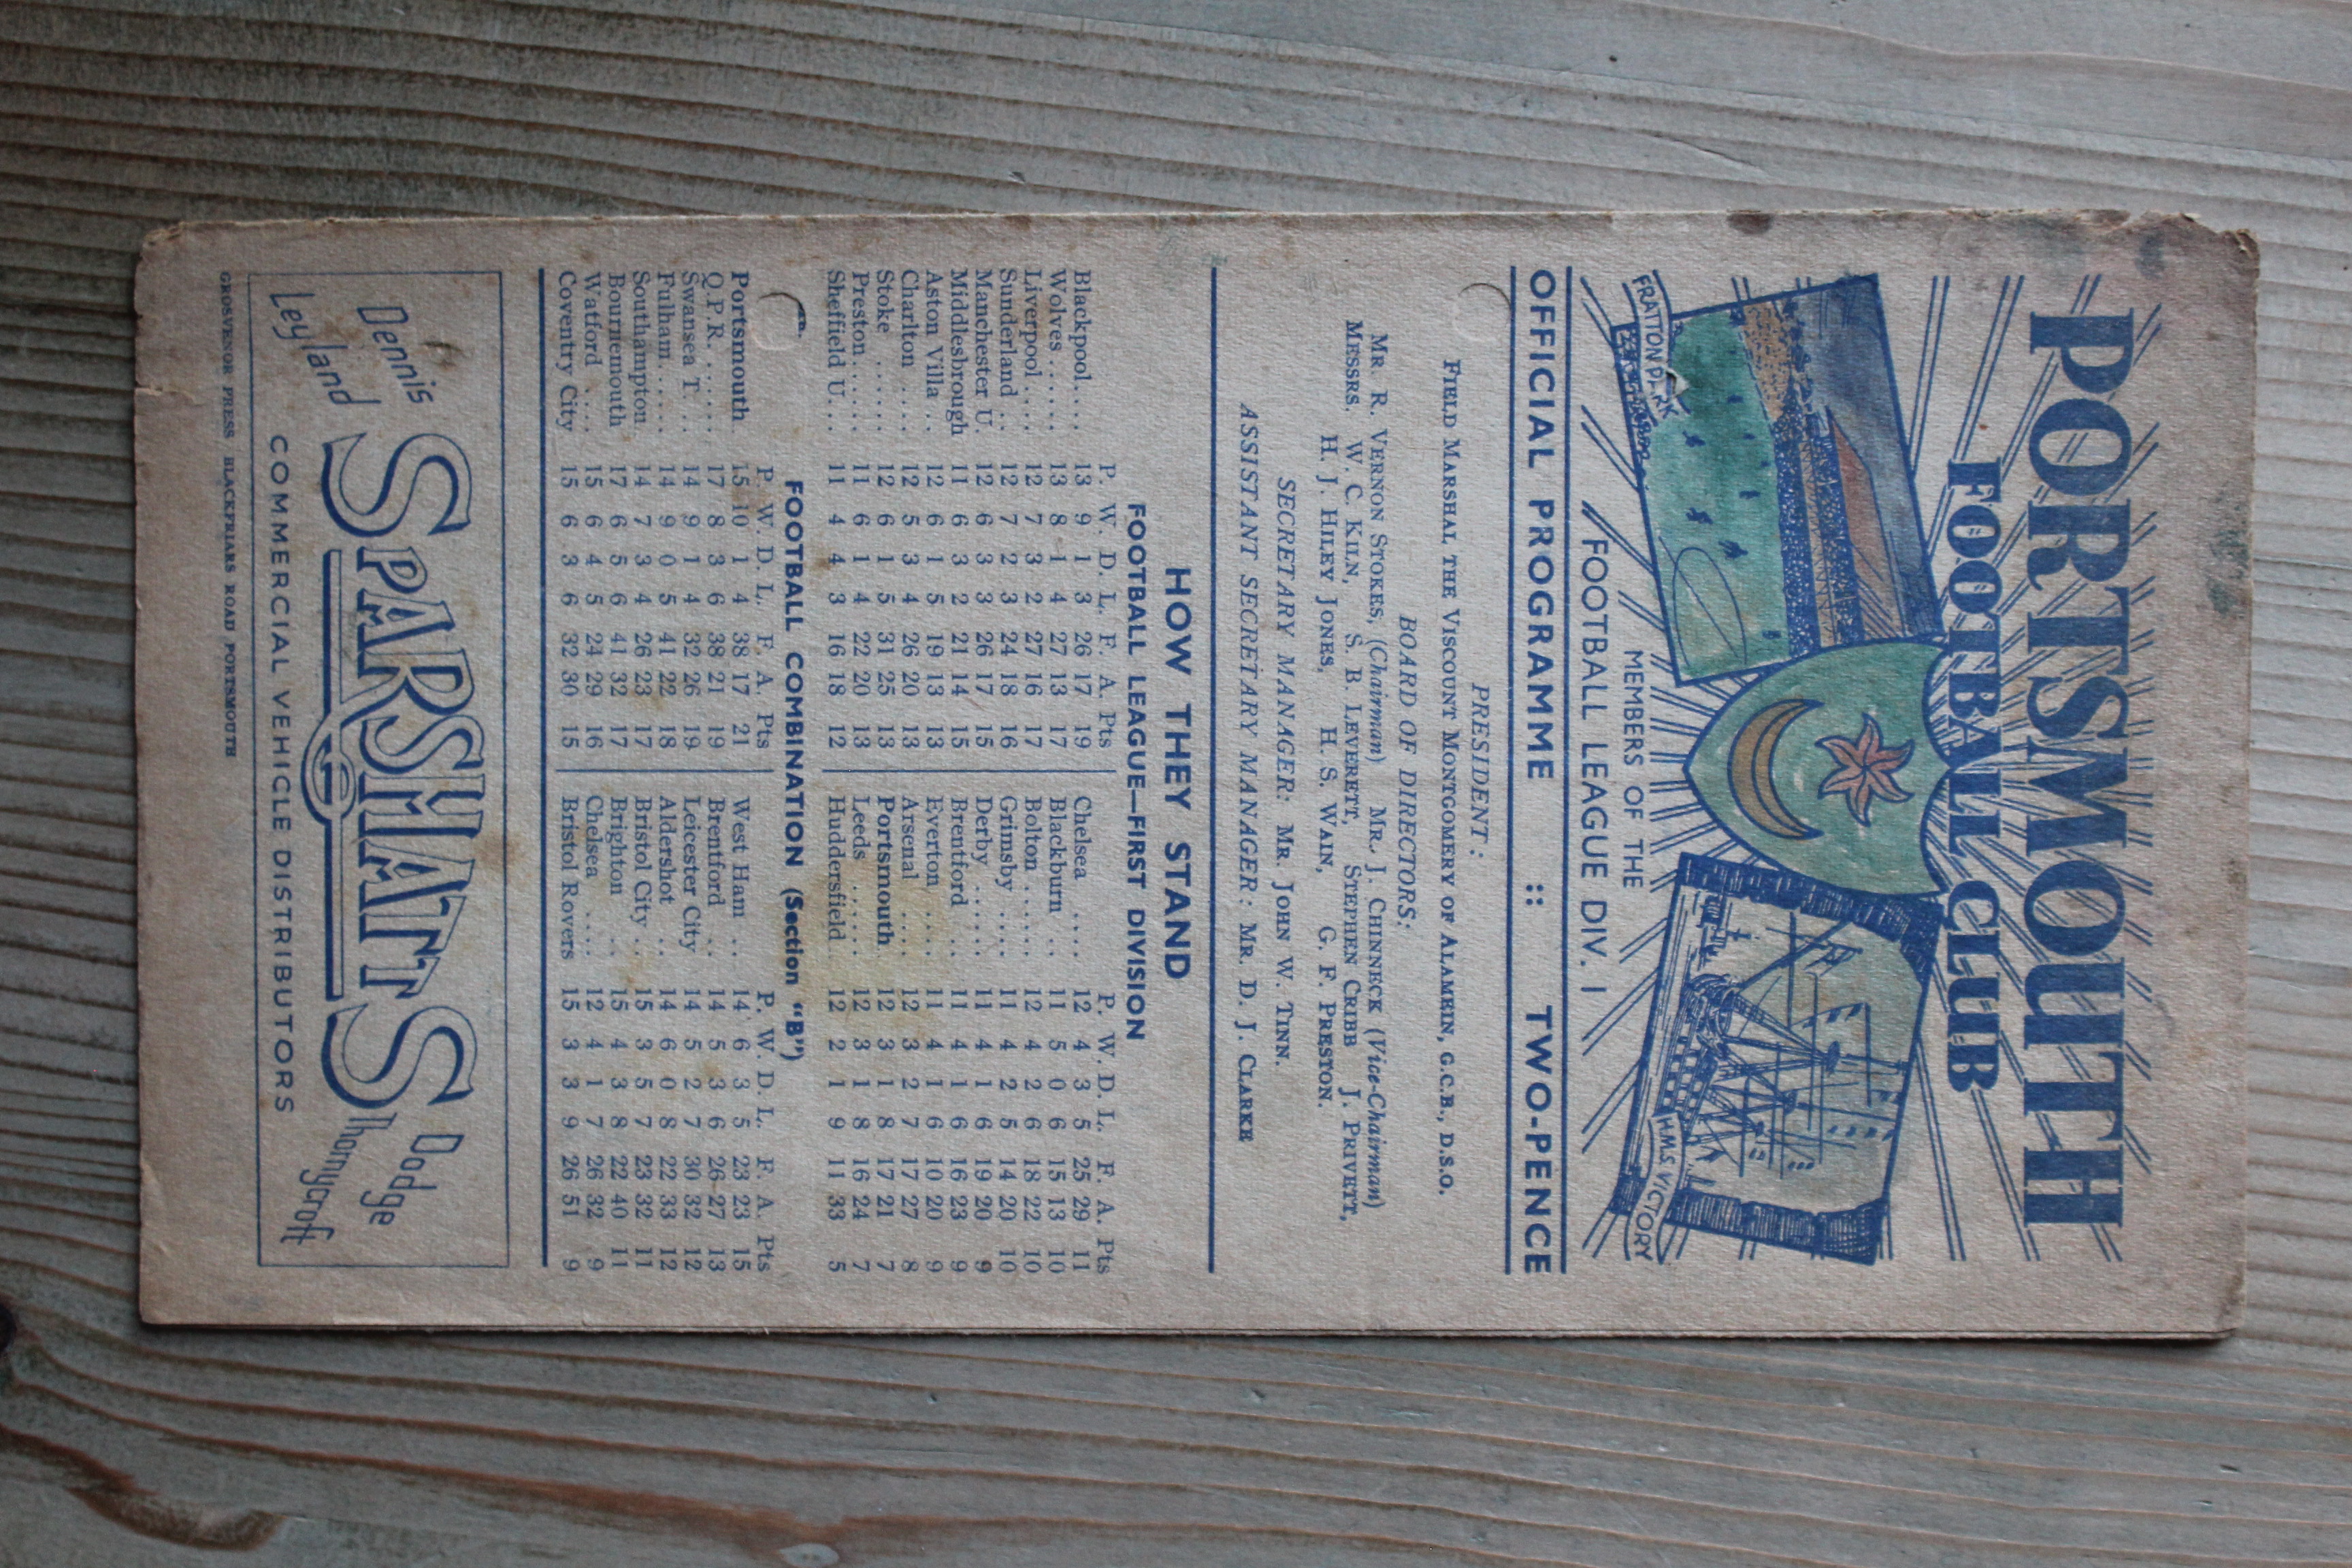 PORTSMOUTH
FOOTBALL CLUB
FRATTON PARK
H.M.S. VICTORY
MEMBERS OF THE
FOOTBALL LEAGUE DIV. 1
OFFICIAL PROGRAMME :: TWO-PENCE
PRESIDENT:
FIELD MARSHAL THE VISCOUNT MONTGOMERY OF ALAMEIN, G.C.B., D.S.O.
BOARD OF DIRECTORS:
MR R. VERNON STOKES, (Chairman) MR. J. CHINNECK (Vice-Chairman)
MESSRS. W. C. KILN, S. B. LEVERETT, STEPHEN CRIBB J. PRIVETT,
H. J. HILEY JONES, H. S. WAIN, G. F. PRESTON.
SECRETARY MANAGER: MR. JOHN W. TINN.
ASSISTANT SECRETARY MANAGER: MR. D. J. CLARKE
HOW THEY STAND
FOOTBALL LEAGUE—FIRST DIVISION
P. W. D. L. F. A. Pts P. W. D. L. F. A. Pts
Blackpool.... 13 9 1 3 26 17 19 Chelsea .... 12 4 3 5 25 29 11
Wolves...... 13 8 1 4 27 13 17 Blackburn .. 11 5 0 6 15 13 10
Liverpool.... 12 7 3 2 27 16 17 Bolton ...... 12 4 2 6 18 22 10
Sunderland .. 12 7 2 3 24 18 16 Grimsby .... 11 4 2 5 14 20 10
Manchester U. 12 6 3 3 26 17 15 Derby ...... 11 4 1 6 19 20 9
Middlesbrough 11 6 3 2 21 14 15 Brentford .. 11 4 1 6 16 23 9
Aston Villa .. 12 6 1 5 19 13 13 Everton .... 11 4 1 6 10 20 9
Charlton .... 12 5 3 4 26 20 13 Arsenal .... 12 3 2 7 17 27 8
Stoke ...... 12 6 1 5 31 25 13 Portsmouth. 12 3 1 8 17 21 7
Preston...... 11 6 1 4 22 20 13 Leeds ...... 12 3 1 8 16 24 7
Sheffield U. .. 11 4 4 3 16 18 12 Huddersfield . 12 2 1 9 11 33 5
FOOTBALL COMBINATION (Section "B")
P. W. D. L. F. A. Pts P. W. D. L. F. A. Pts
Portsmouth 15 10 1 4 38 17 21 West Ham .. 14 6 3 5 23 23 15
Q.P.R. ...... 17 8 3 6 38 21 19 Brentford .. 14 5 3 6 26 27 13
Swansea T. .. 14 9 1 4 32 26 19 Leicester City 14 5 2 7 30 32 12
Fulham...... 14 9 0 5 41 22 18 Aldershot .. 14 6 0 8 22 33 12
Southampton. 14 7 3 4 26 23 17 Bristol City .. 15 3 5 7 23 32 11
Bournemouth 17 6 5 6 41 32 17 Brighton .. 15 4 3 8 22 40 11
Watford .... 15 6 4 5 24 29 16 Chelsea .... 12 4 1 7 26 32 9
Coventry City 15 6 3 6 32 30 15 Bristol Rovers 15 3 3 9 26 51 9
Dennis Dodge
Leyland SPARSHATTS Thornycroft
COMMERCIAL VEHICLE DISTRIBUTORS
GROSVENOR PRESS BLACKFRIARS ROAD PORTSMOUTH